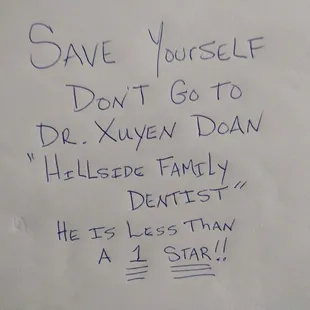 SAVE YOURSELF
DON'T GO TO
DR. XUYEN DOAN
"HILLSIDE FAMILY
DENTIST"
HE IS LESS THAN
A 1 STAR!!